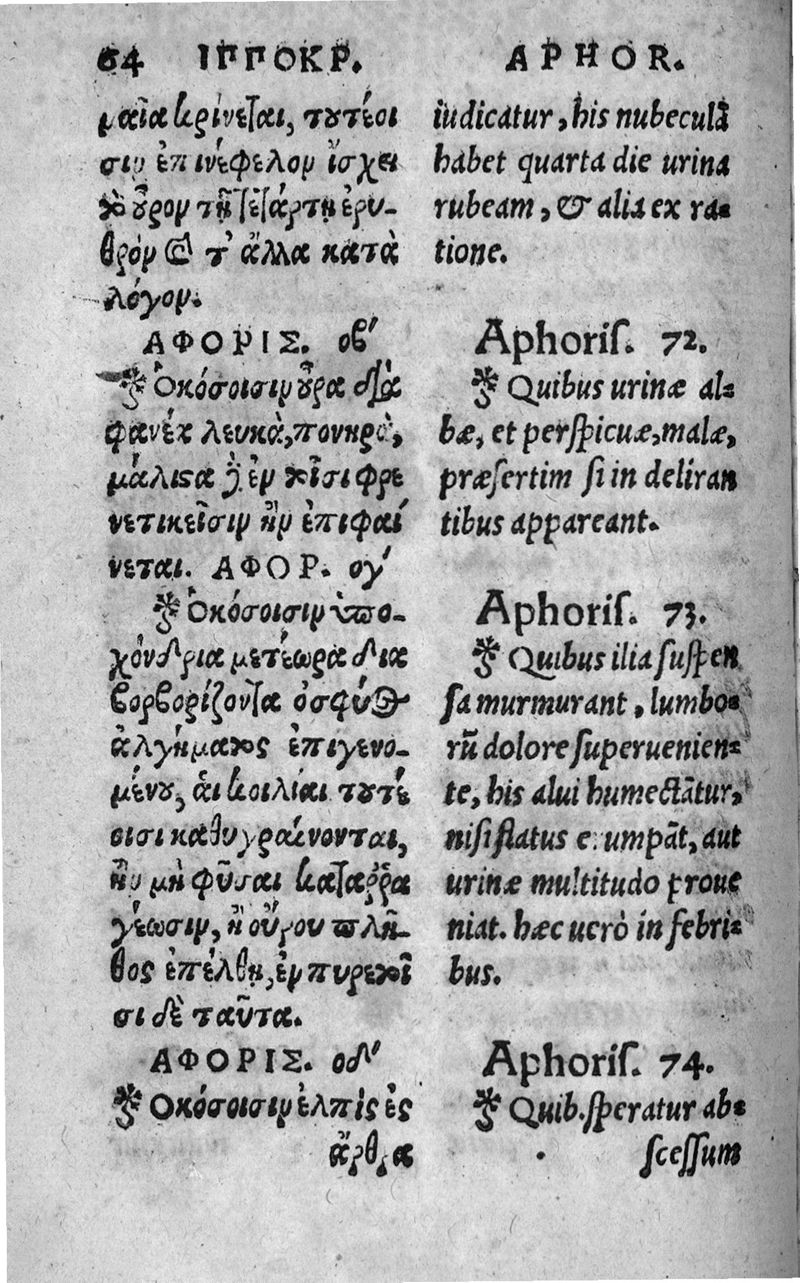 64 ΙΠΠΟΚΡ.
μαῖα κρίνεται, τουτέοι
σιν ἐπινέφελον ἴσχει
τὸ οὖρον τῇ τετάρτῃ ἐρυ-
θρόν καὶ τ' ἄλλα κατὰ
λόγον.
ΑΦΟΡΙΣ. οβ'
Ὁκόσοισιν οὖρα δια
φανέα λευκὰ, πονηρὰ,
μάλιστα δ' ἐν τοῖσι φρε
νετικεῖσιν ἢν ἐπιφαί
νεται. ΑΦΟΡ. ογ'
Ὁκόσοισιν ὑπο-
χόνδρια μετέωρα δια
βορβορίζοντα ὀσφύος
ἀλγήματος ἐπιγενο-
μένου, ἁι κοιλίαι τουτέ
οισι καθυγραίνονται,
ἢν μὴ φῦσαι καταῤῥα
γέωσιν, ἢ οὔρου πλῆ-
θος ἐπέλθῃ, ἐν πυρετοῖ
σι δὲ ταῦτα.
ΑΦΟΡΙΣ. οδ'
Ὁκόσοισιν ἐλπὶς ἐς
ἄρθρα
APHOR.
iudicatur, his nubeculã
habet quarta die urina
rubeam, & alia ex ra-
tione.
Aphoris. 72.
Quibus urinæ al-
bæ, et perspicuæ, malæ,
præsertim si in deliran
tibus appareant.
Aphoris. 73.
Quibus ilia suspen
sa murmurant, lumbo-
rũ dolore superuenien-
te, his alui humectãtur,
nisi flatus erumpãt, aut
urinæ multitudo proue
niat. hæc uerò in febri-
bus.
Aphoris. 74.
Quib. speratur ab-
scessum